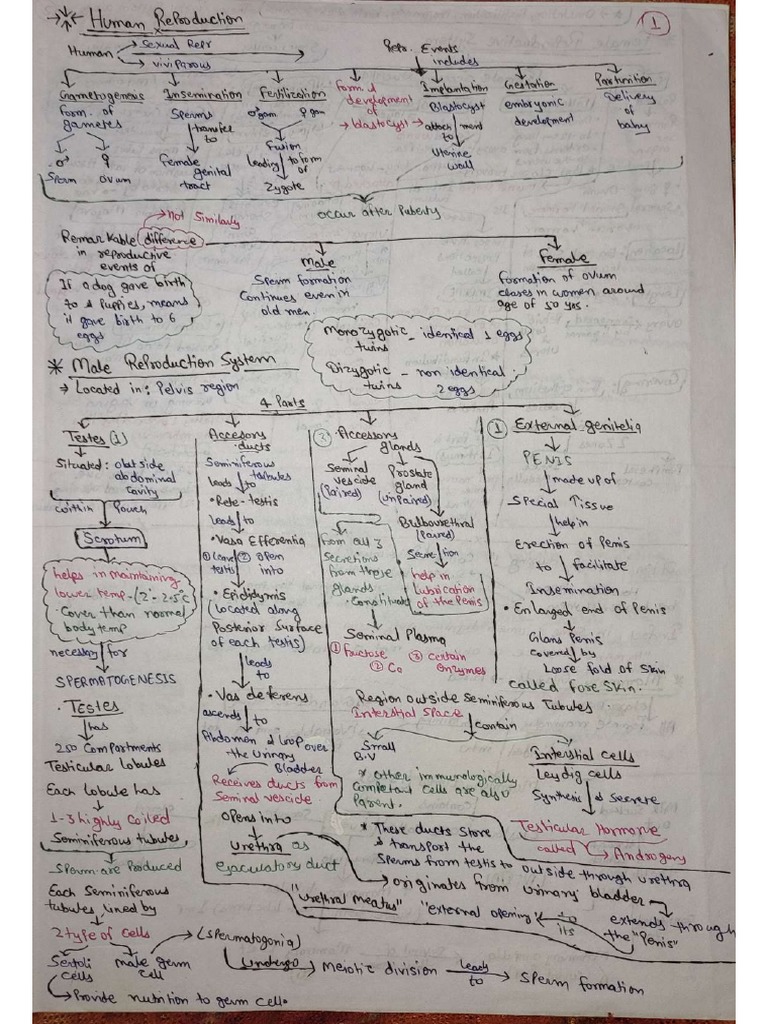 Human Reproduction
1
Human → Sexual Repr
→ viviparous
Repr. Events
includes
Gametogenesis
form. of
gametes
♂ ♀
Sperm ovum
Insemination
Sperms
transfer
to
Female
genital
tract
Fertilization
♂gam ♀gam
Fusion
leading to form
of
Zygote
Form. &
development
of
→ blastocyst →
Implantation
Blastocyst
attach ment
to
Uterine
wall
Gestation
embryonic
development
Parturition
Delivery
of
baby
occur after Puberty
→ Not Similarly
Remarkable difference
in reproductive
events of
Male
Sperm formation
Continues even in
old men.
Female
Formation of ovum
in women around
age of 50 yrs.
If a dog gave birth
to puppies, means
it gave birth to 6
eggs
Monozygotic - identical 1 eggs
twins
Dizygotic - non identical
twins 2 eggs
* Male Reproduction System
→ Located in: Pelvis region
4 Parts
Testes (1)
Situated: outside
abdominal
cavity
within Pouch
Scrotum
helps in maintaining
lower temp - (2°-2.5°C
than normal
body temp
necessary for
SPERMATOGENESIS
. Testes
has
250 Compartments
Testicular lobules
Each lobule has
1-3 highly Coiled
Seminiferous tubules
Sperm are Produced
Each Seminiferous
tubules lined by
2 type of Cells
Sertoli
cells
male germ
cell
→ Provide nutrition to germ cell.
→ (Spermatogonia)
undergo → Meiotic division leads to → Sperm formation
Accesory
ducts
Seminiferous
tubules
leads to
• Rete-testis
leads to
• Vasa Efferentia
① leave testis ② open into
• Epididymis
(located along
Posterior surface
of each testis)
leads
to
• Vas deferens
ascends to
Abdomen & loop over
the Urinary
Bladder
Receives ducts from
Seminal vescicle
opens into
Urethra as
ejaculatory duct
③ Accessory
glands
Seminal
vescicle
(Paired)
Prostate
gland
(unpaired)
Bulbourethral
(Paired)
Secretion
help in
lubrication
of the Penis
from all 3
secretions
from these
glands
Constitutes
Seminal Plasma
① fructose
② Ca
③ certain
enzymes
① External genitelia
PENIS
made up of
Special Tissue
help in
Erection of Penis
to facilitate
Insemination
• Enlarged end of Penis
Glans Penis
covered by
Loose fold of skin
called fore skin.
Region outside Seminiferous Tubules
Interstial Space
contain
Small
B.V
Interstial cells
Leydig cells
Synthesis & Secrete
Testicular Hormone
called → Androgen
* other immunologically
Competant Cells are also
Parent.
* These ducts store
& transport the
sperms from testis to outside through urethra
→ originates from urinary bladder
extends through
the "Penis"
to
its
"external opening"
"urethral meatus"